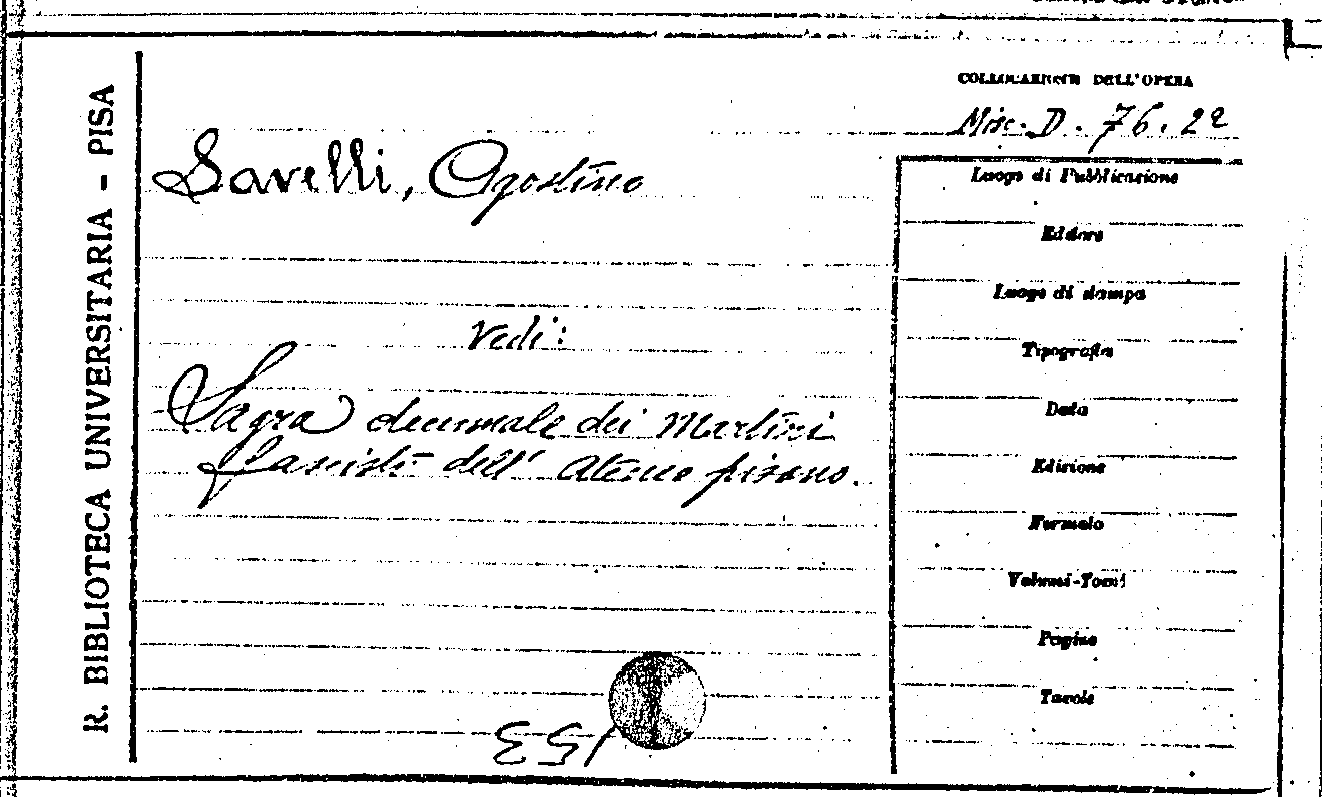 R. BIBLIOTECA UNIVERSITARIA - PISA
COLLOCAZIONE DELL'OPERA
Misc. D. 76. 22
Savelli, Agostino
Vedi:
Sagra decennale dei Martiri
fascisti dell' Ateneo pisano.
Luogo di Pubblicazione
Editore
Luogo di stampa
Tipografia
Data
Edizione
Formato
Volumi-Tomi
Pagine
Tavole
153